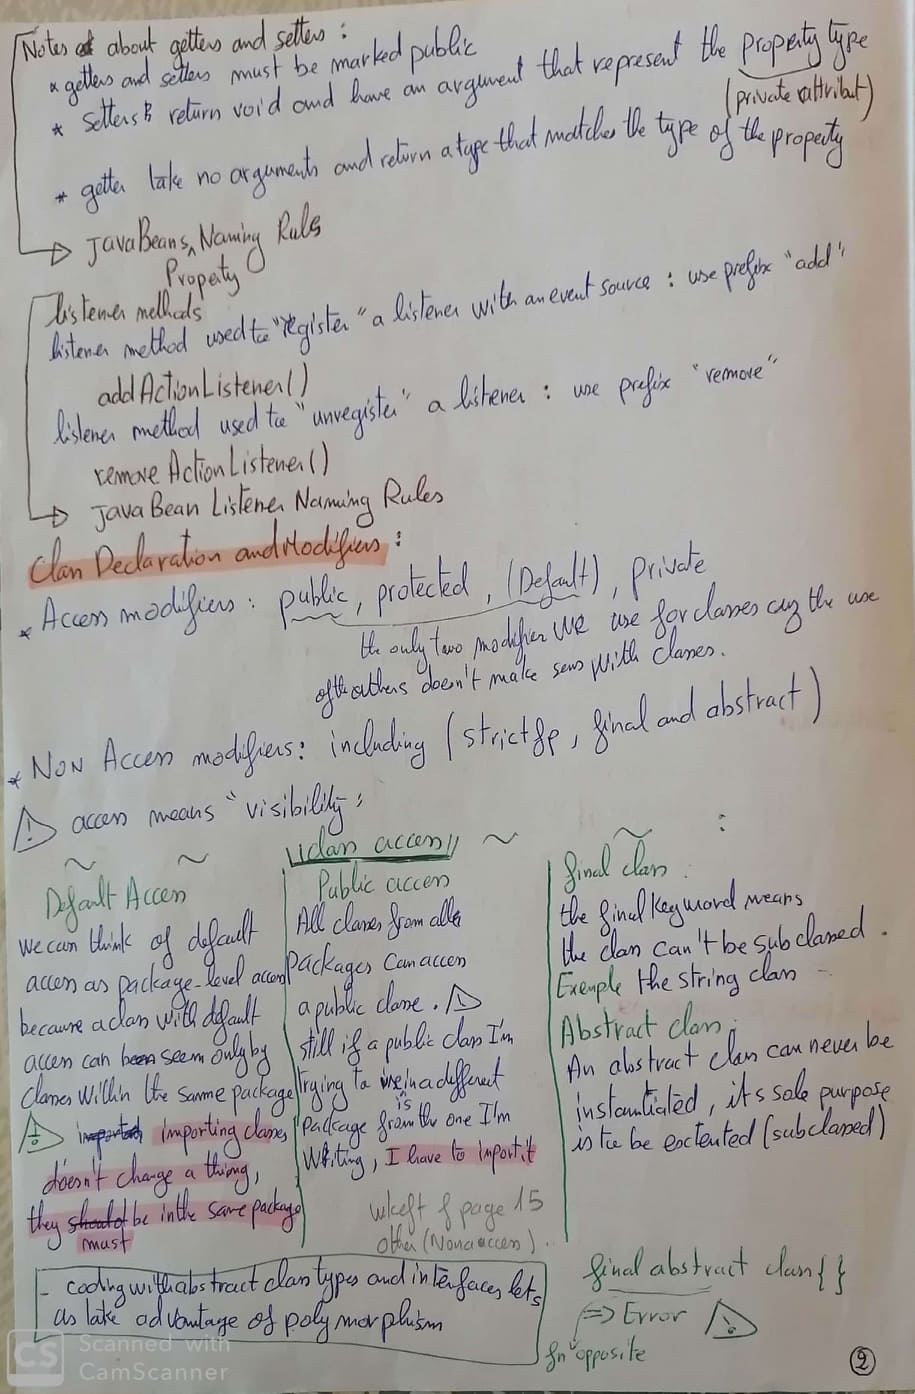 Notes about getters and setters :
* getters and setters must be marked public
* setters return void and have an argument that represent the property type
(private attribut)
* getter take no arguments and return a type that matches the type of the property
JavaBeans Property Naming Rules
listener methods
listener method used to "register" a listener with an event source : use prefix "add"
addActionListener()
listener method used to "unregister" a listener : use prefix "remove"
remove ActionListener()
Java Bean Listener Naming Rules
Class Declaration and Modifiers :
* Access modifiers : public, protected, (Default), private
the only two modifier we use for classes cuz the use
of the others doesn't make sens with classes.
* Non Access modifiers : including (strictfp, final and abstract)
access means "visibility"
class access
Default Access
we can think of default
access as package-level access
because a class with default
access can seem only by
classes within the same package
importing classes
doesn't change a thing,
they must be in the same package
Public access
All classes from all
packages can access
a public classe.
still if a public class I'm
trying to use is in a different
package from the one I'm
writing, I have to import it
page 15
other (Nonaccess)
final class :
the final keyword means
the class can't be subclassed.
Exemple the string class
Abstract class :
An abstract class can never be
instantiated, it's sole purpose
is to be extented (subclassed)
- coding with abstract class types and interfaces lets
us take advantage of polymorphism
final abstract class { }
=> Error
opposite
2
CS Scanned with
CamScanner